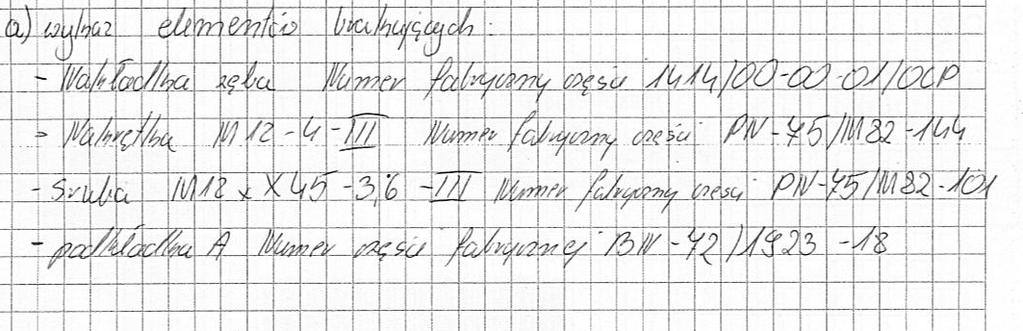 a) wykaz elementów brakujących:
- Nakładka zęba Numer fabryczny części 1414/00-00-01/0CP
- Nakrętka M12-4-III Numer fabryczny części PN-75/M82-144
- Śruba M12 x X45-3,6-III Numer fabryczny części PN-75/M82-101
- podkładka A Numer części fabrycznej BN-72/1923-18